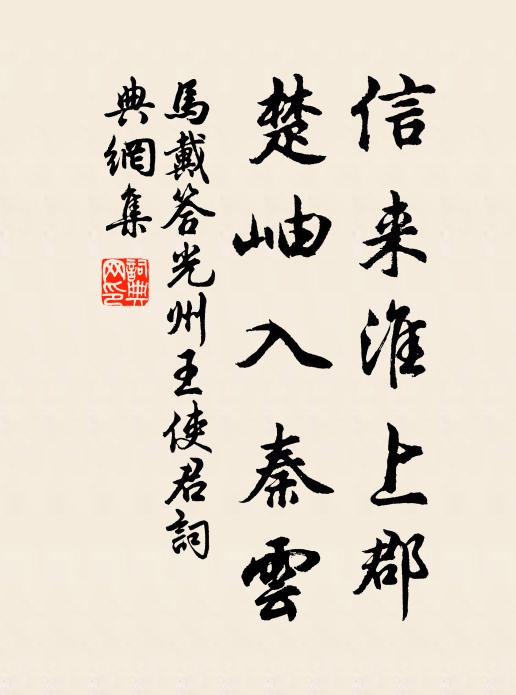 信来淮上郡
楚岫入秦雲
馬戴答光州王使君詞
典網集
詞典
网印